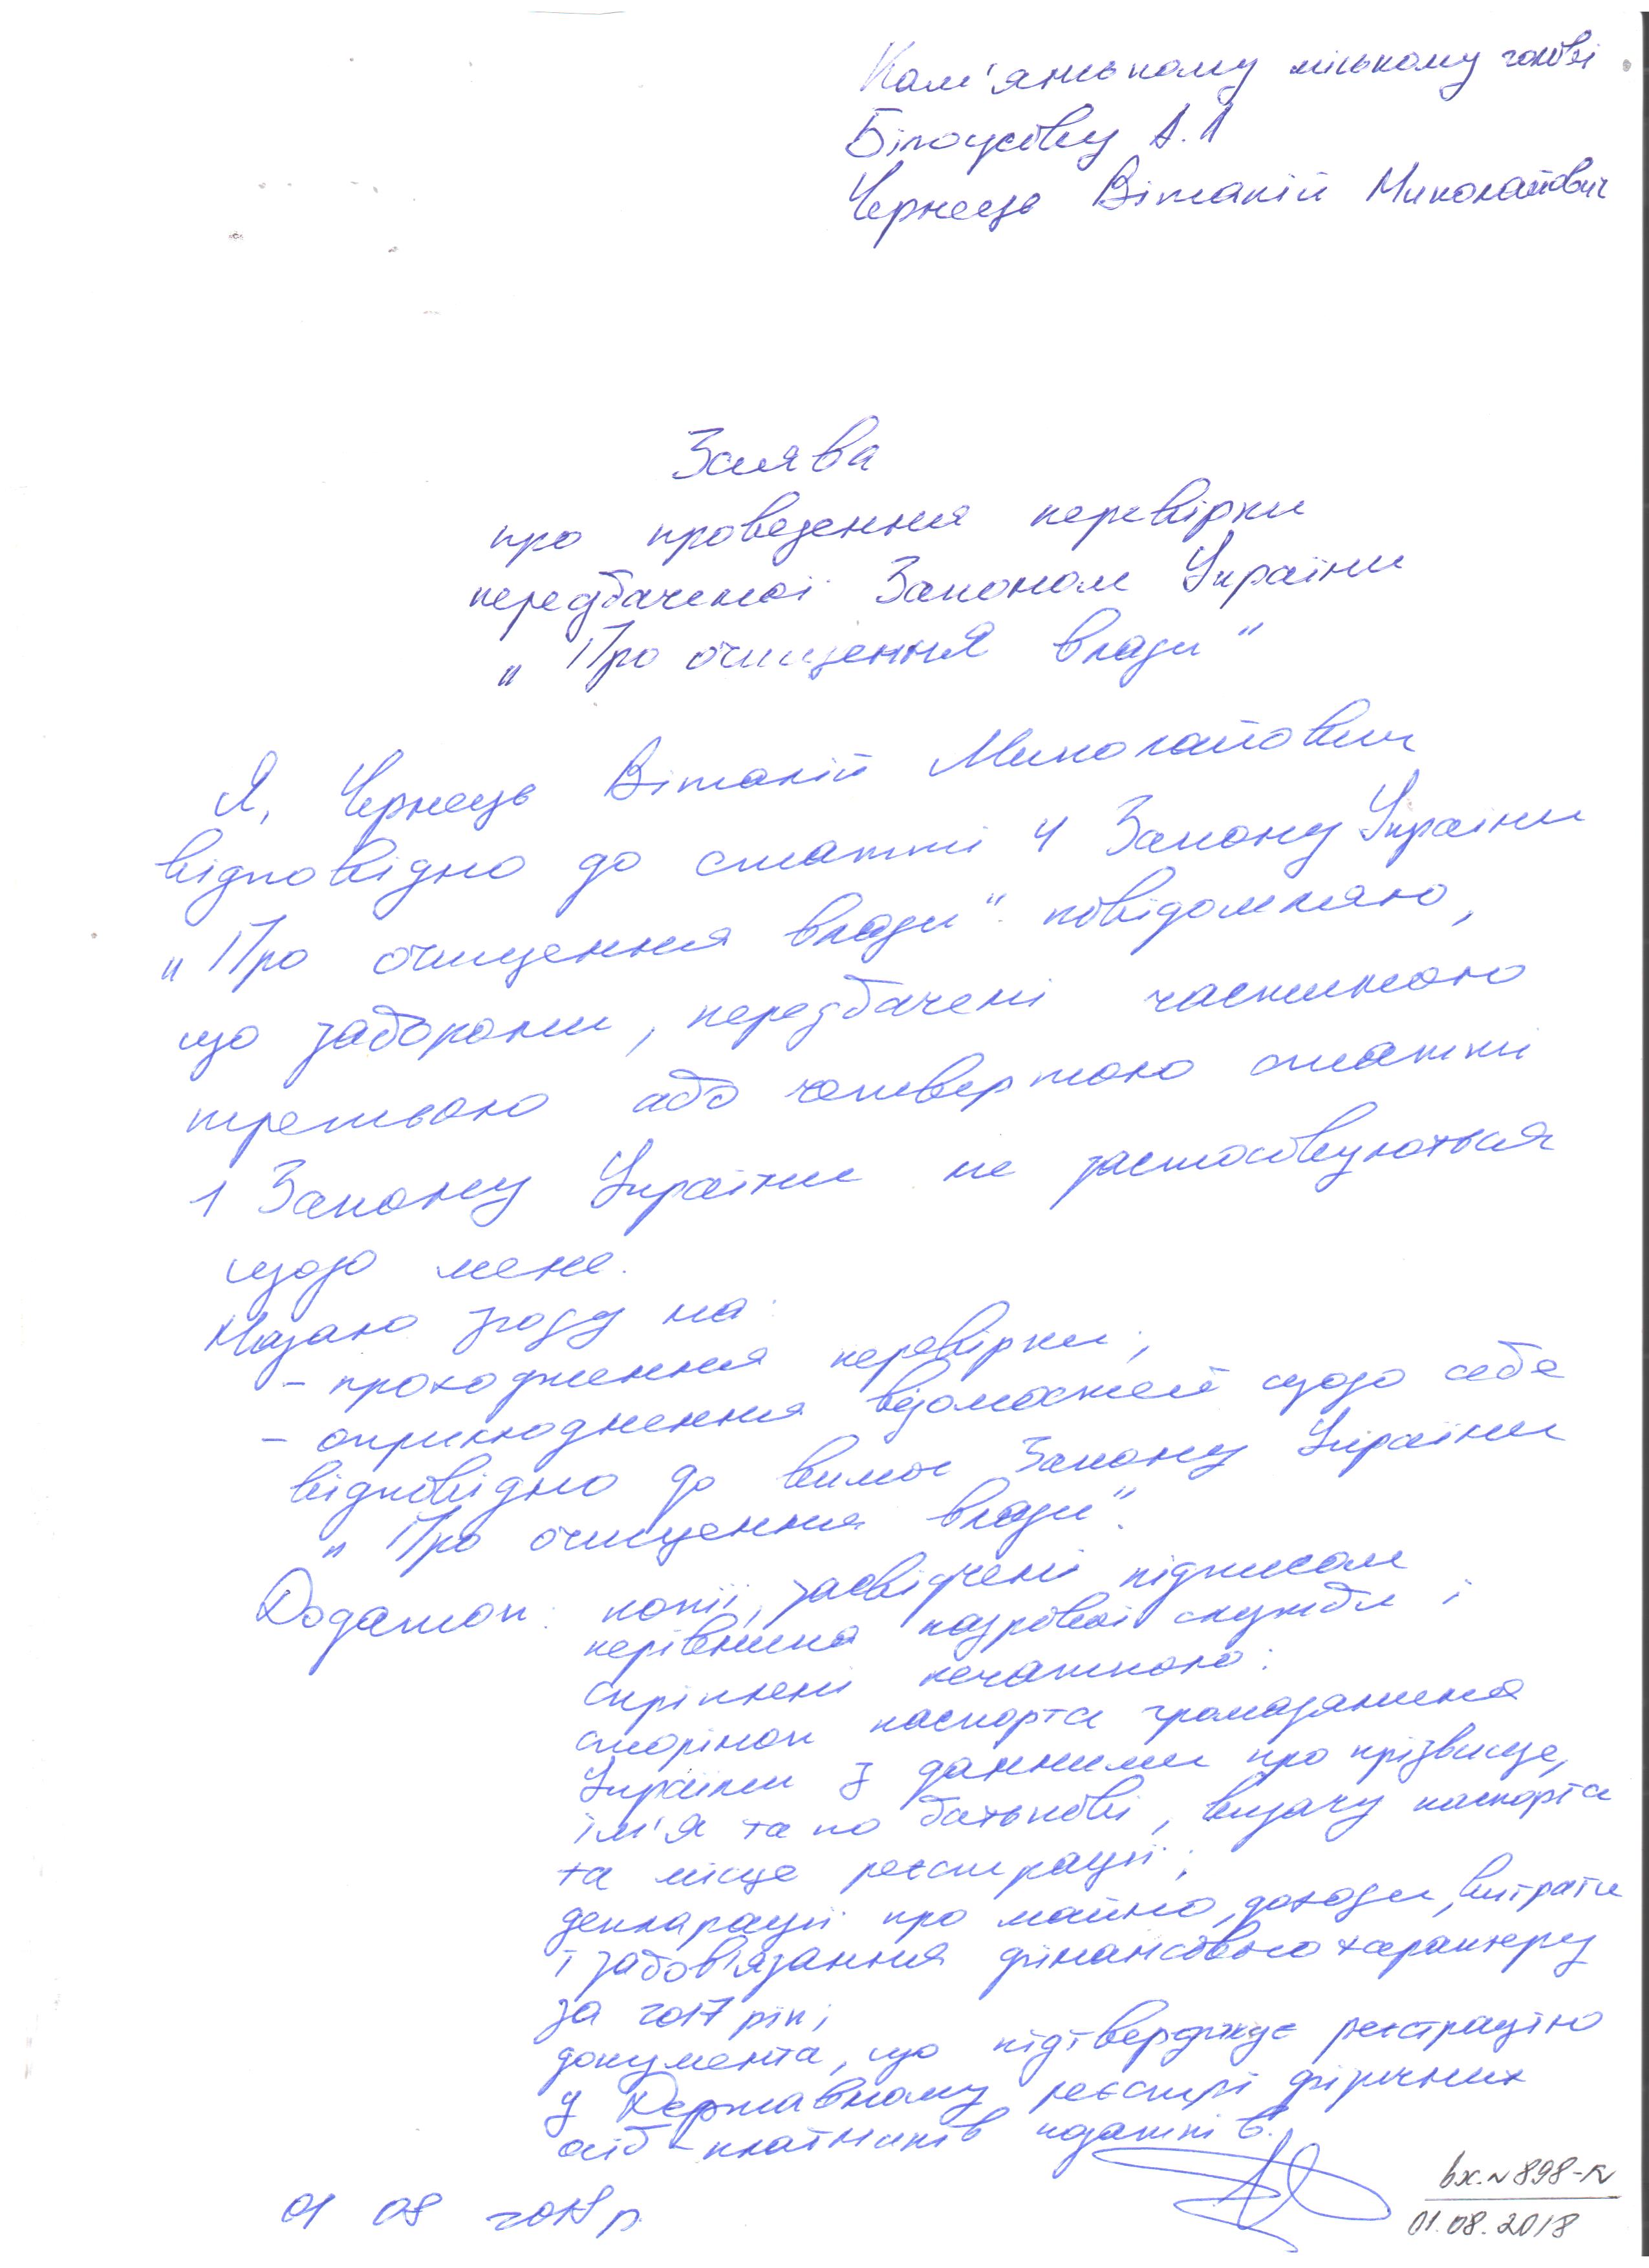 Кам'янському міському голові
Білоусову А.Л
Чернець Віталій Миколайович
Заява
про проведення перевірки
передбаченої Законом України
„Про очищення влади"
Я, Чернець Віталій Миколайович
відповідно до статті 4 Закону України
„Про очищення влади" повідомляю,
що заборони, передбачені частиною
третьою або четвертою статті
1 Закону України не застосовуються
щодо мене.
Надаю згоду на:
- проходження перевірки;
- оприлюднення відомостей щодо себе
відповідно до вимог Закону України
„Про очищення влади".
Додаток: копії, засвідчені підписом
керівника кадрової служби і
скріплені печаткою:
сторінок паспорта громадянина
України з данними про прізвище,
ім'я та по батькові, видачу паспорта
та місце реєстрації;
декларації про майно, доходи, витрати
і зобов'язання фінансового характеру
за 2017 рік;
документа, що підтверджує реєстрацію
у Державному реєстрі фізичних
осіб-платників податків.
01 08 2018 р.
вх.№898-к
01.08.2018